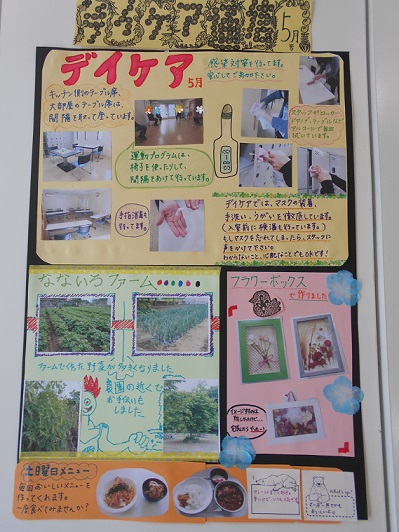 5月号
デイケア
5月
感染対策を行ってます。
安心してご参加下さい。
キッチン側のテーブル席、
大部屋のテーブル席は、
間隔を取って座っています。
運動プログラムは、
椅子を使ったりして、
間隔をあけて行っています。
手指消毒も
行っています。
アルコールで毎回
拭いています。
デイケアでは、マスクの装着、
手洗い・うがいを徹底しています。
(入室前に検温も行っています。)
もしマスクを忘れてしまったら、スタッフに
声をかけて下さい。
わからないこと、心配なことでもOKです!
なないろファーム
ファームで作った野菜が大きくなりました
農園の近くで
お手伝いも
しました
フラワーボックス
を作りました
土曜日メニュー
毎回おいしいメニューを
作ってくれます。
一度食べてみませんか?